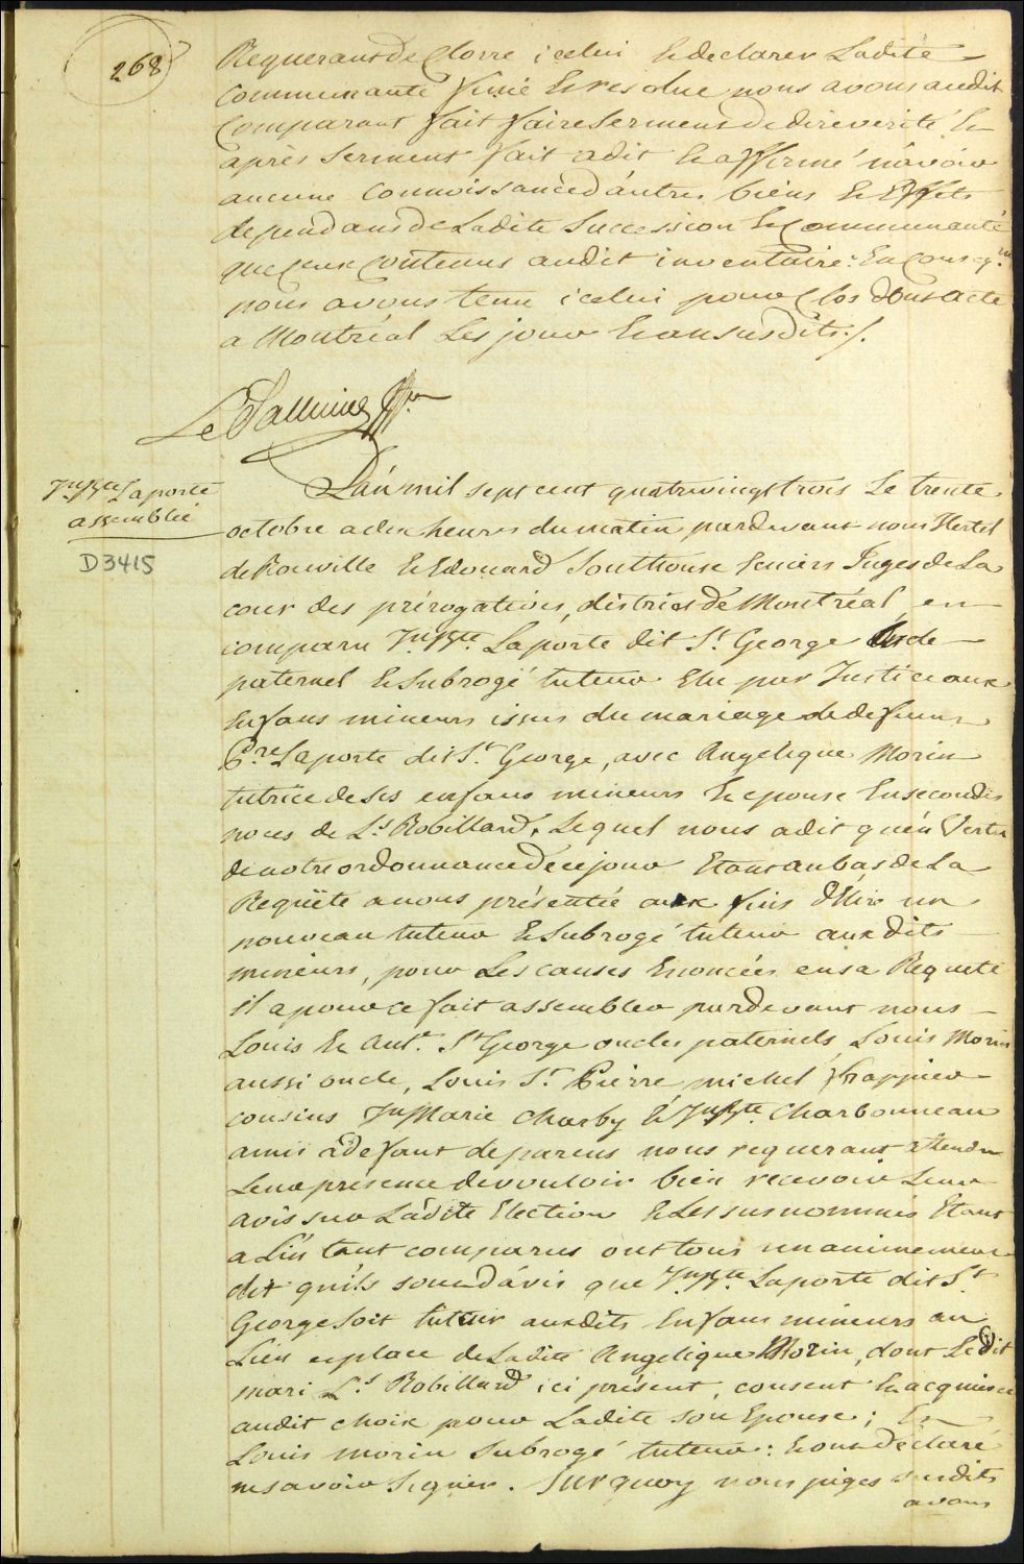 268
Requerant de Clorre icelui & declarer Ladite
Communauté finie & resolue nous avons audit
Comparant fait faire Serment de dire verité &
après Serment fait a dit & affirmé n'avoir
aucune Connoissance d'autres biens & Effets
dependans de Ladite Succession & Communauté
que Ceux Contenus audit inventaire: En Conseq.
nous avons tenu icelui pour Clos dont acte
a Montréal Les jour & an susdits ./.
Jn Bte Laporte
assemblée
D3415
L'an mil sept cent quatrevingt trois Le trente
octobre a dix heures du matin pardevant nous Hertel
de Rouville & Edouard Southouse Ecuiers Juges de La
cour des prérogatives, district de Montréal en
comparu Jn Bte Laporte dit St. George Oncle
paternel & Subrogé tuteur Elu par Justice aux
Enfans mineurs issus du mariage de defunt
Pre. Laporte dit St. George, avec Angelique Morin
tutrice de Ses enfans mineurs & epouse En secondes
noces de Ls. Robillard. Lequel nous a dit qu'en Vertu
de notre ordonnance de ce jour Etant au bas de La
Requête a nous présentée aux fins d'Elire un
nouveau tuteur & Subrogé tuteur aux dits
mineurs, pour Les causes Enoncées en sa Requete
il a pour ce fait assembler pardevant nous
Louis & Ant. St George oncles paternels, Louis Morin
aussi oncle, Louis St. Pierre michel frappier
cousins Jn Marie Charby & Jn Bte. Charbonneau
amis a defaut de parens nous requerant attendu
Leur présence de vouloir bien recevoir Leur
avis sur Ladite Election & Les susnommés Etant
a L'instant comparus ont tous unanimement
dit qu'ils sont d'avis que Jn Bte. Laporte dit St
George Soit tuteur auxdits Enfans mineurs au
Lieu en place de Ladite Angelique Morin, dont Le dit
mari Ls. Robillard ici présent, consent & acquiesce
audit choix pour Ladite son Epouse; Et
Louis morin Subrogé tuteur: & ont déclaré
ne savoir Signer. Sur quoy nous juges susdits
avons